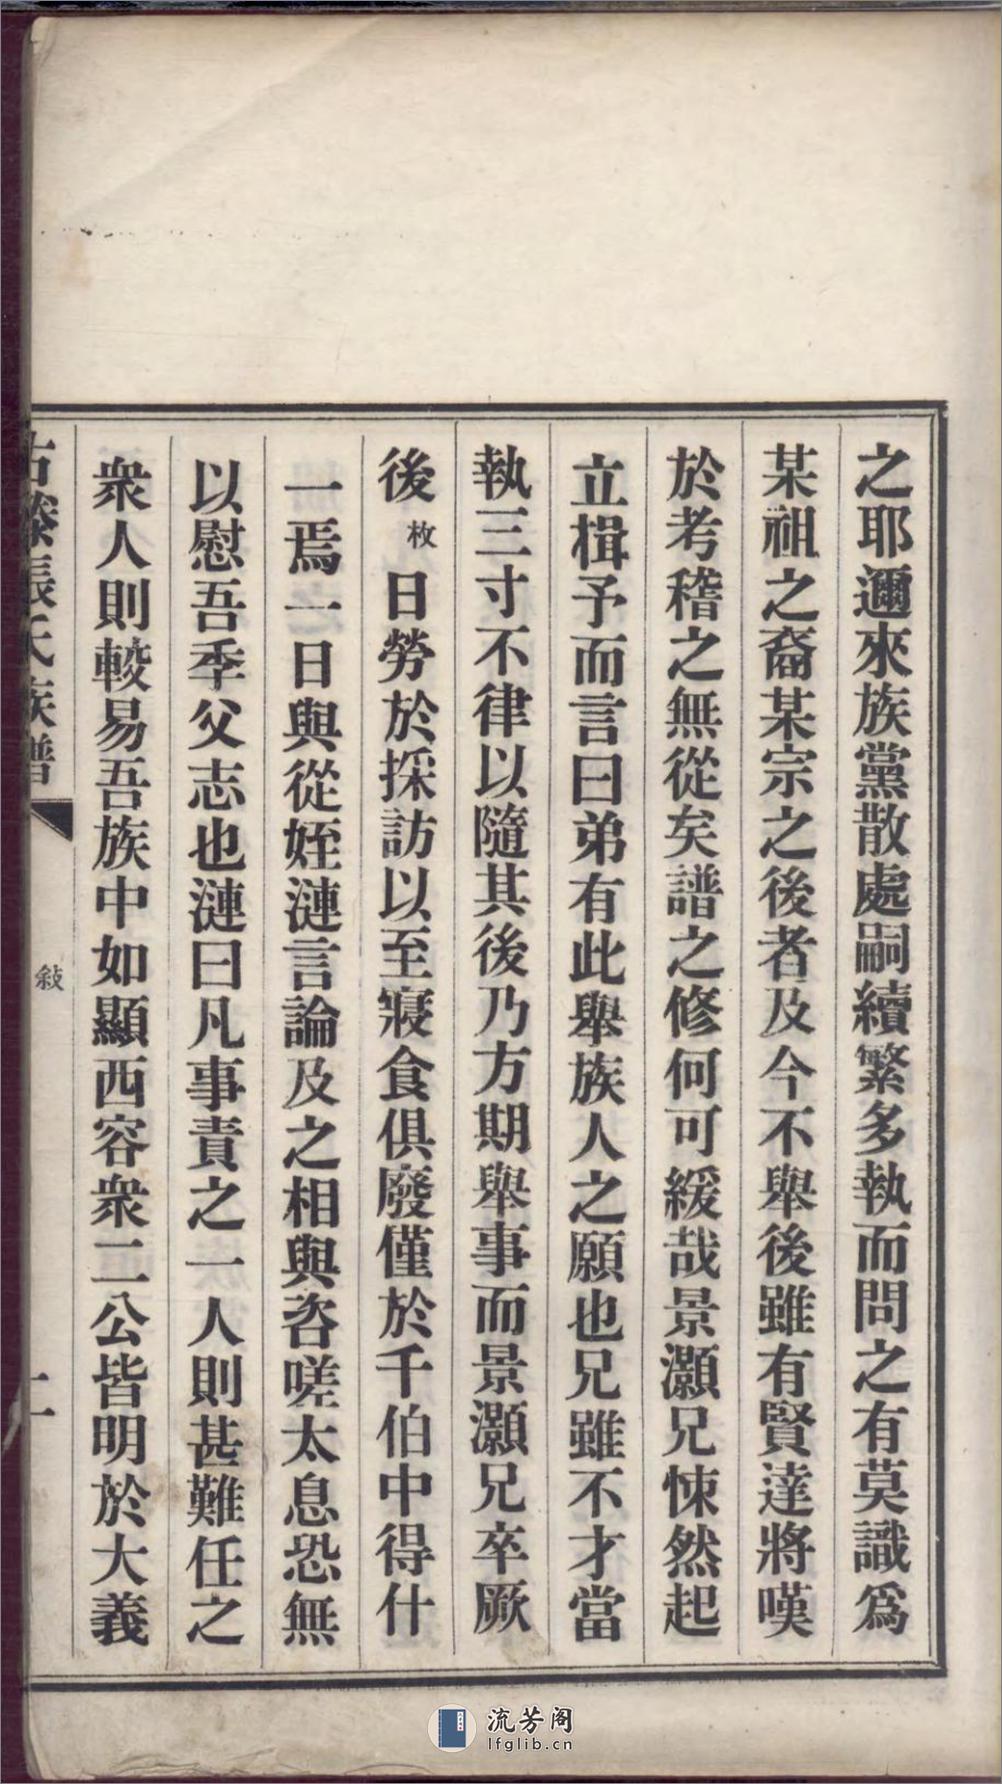 之耶邇來族黨散處嗣續繁多執而問之有莫識爲
某祖之裔某宗之後者及今不舉後雖有賢達將嘆
於考稽之無從矣譜之修何可緩哉景灝兄悚然起
立楫予而言曰弟有此舉族人之願也兄雖不才當
執三寸不律以隨其後乃方期舉事而景灝兄卒厥
後枚日勞於採訪以至寢食俱廢僅於千伯中得什
一焉一日與從姪漣言論及之相與咨嗟太息恐無
以慰吾季父志也漣曰凡事責之一人則甚難任之
衆人則較易吾族中如顯西容衆二公皆明於大義
古滕張氏族譜
敍
二
流芳阁
lfglib.cn